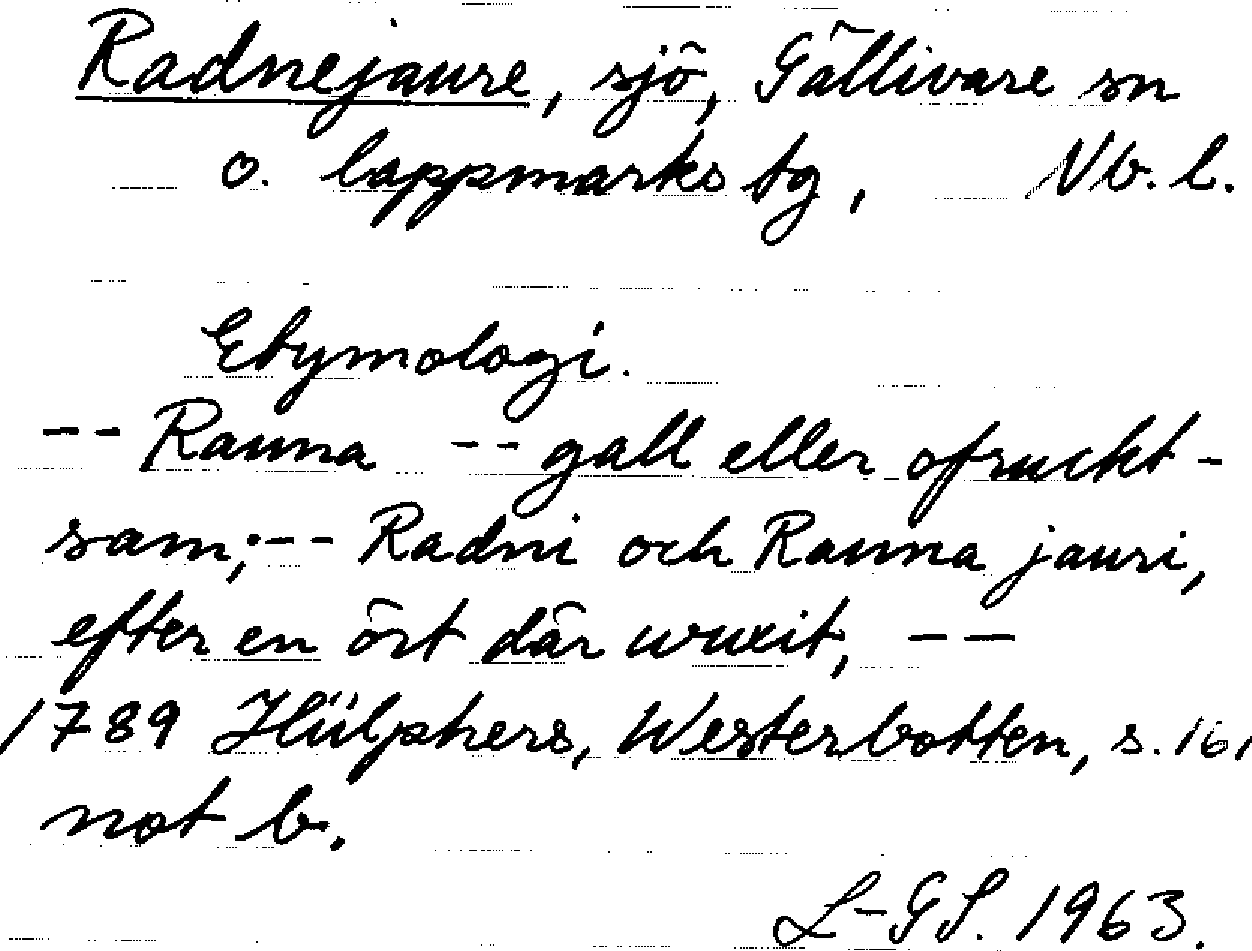 Radnejaure, sjö, Gällivare sn
o. lappmarks tg, Nb. l.
Etymologi.
-- Rauna -- gall eller ofruckt-
sam; -- Radni och Rauna jauri,
efter en ört där wuxit, --
1789 Hülphers, Westerbotten, s. 161
not b.
L-GS. 1963.